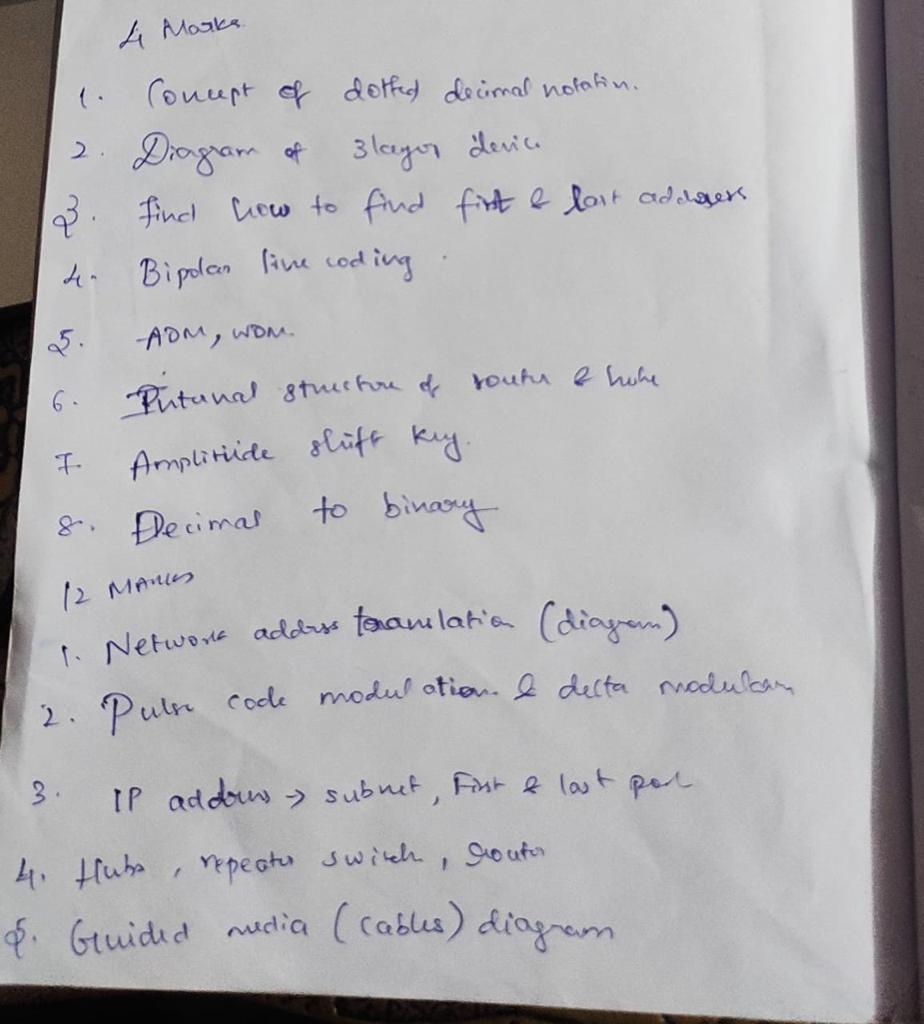 4 Marks
1. Concept of dotted decimal notatin.
2. Diagram of 3 layer device
3. find how to find first & last address
4. Bipolar line coding.
5. ADM, WDM.
6. Intunal structure of router & hube
7. Amplitiude shift key.
8. Decimal to binary
12 Marks
1. Network address translation (diagram)
2. Pulse code modulation & delta modulation
3. IP address → subnet, First & last
4. Hubs, repeater switch, router
5. Guided media (cables) diagram